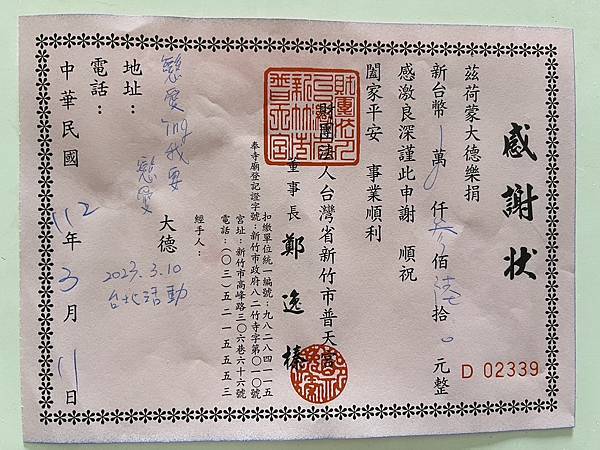 感謝狀
茲荷蒙大德樂捐
新台幣 一萬 0 仟 參 佰 陸 拾 0 元整
感激良深謹此申謝 順祝
闔家平安 事業順利
財團法人台灣省新竹市普天宮
董事長 鄭逸榛
扣繳單位統一編號：九八二八四一一五
奉寺廟登記證字號：新竹市政府八二竹寺字第〇一〇號
宮址：新竹市高峰路三〇六巷六十六號
電話：（〇三）五二一五五五三
經手人：
戀愛ing我要
戀愛
大德
2023.3.10
台北活動
地址：
電話：
中華民國 112 年 3 月 11 日
D 02339